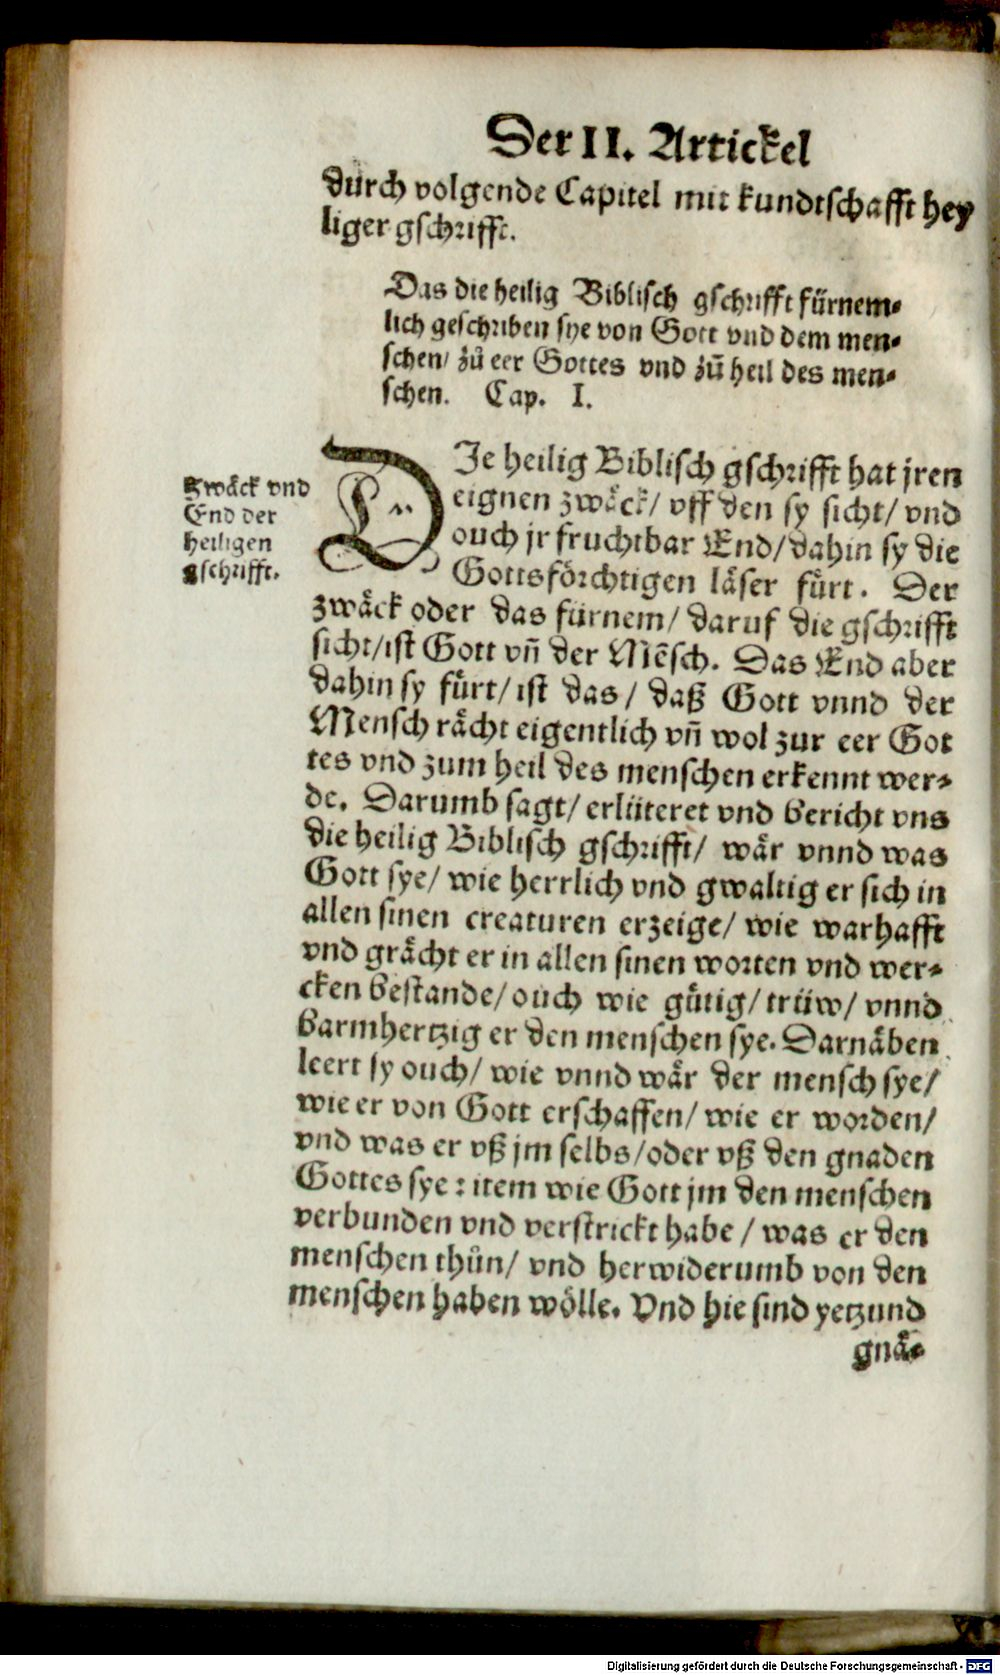 Der II. Artickel
durch volgende Capitel mit kundtschafft hey
liger gschrifft.
Das die heilig Biblisch gschrifft fürnem-
lich geschriben sye von Gott vnd dem men-
schen/ zů eer Gottes vnd zů heil des men-
schen. Cap. I.
Zwäck vnd
End der
heiligen
gschrifft.
DIe heilig Biblisch gschrifft hat jren
eignen zwäck/ vff den sy sicht/ vnd
ouch jr fruchtbar End/ dahin sy die
Gottsförchtigen läser fürt. Der
zwäck oder das fürnem/ daruf die gschrifft
sicht/ist Gott vñ der Mẽsch. Das End aber
dahin sy fürt/ ist das/ daß Gott vnnd der
Mensch rächt eigentlich vñ wol zur eer Got
tes vnd zum heil des menschen erkennt wer-
de. Darumb sagt/ erlüteret vnd bericht vns
die heilig Biblisch gschrifft/ wär vnnd was
Gott sye/ wie herrlich vnd gwaltig er sich in
allen sinen creaturen erzeige/ wie warhafft
vnd grächt er in allen sinen worten vnd wer-
cken bestande/ ouch wie gütig/ trüw/ vnnd
barmhertzig er den menschen sye. Darnäben
leert sy ouch/ wie vnnd wär der mensch sye/
wie er von Gott erschaffen/ wie er worden/
vnd was er vß jm selbs/oder vß den gnaden
Gottes sye: item wie Gott jm den menschen
verbunden vnd verstrickt habe/ was er den
menschen thůn/ vnd herwiderumb von den
menschen haben wölle. Vnd hie sind yetzund
gnä-
Digitalisierung gefördert durch die Deutsche Forschungsgemeinschaft - DFG